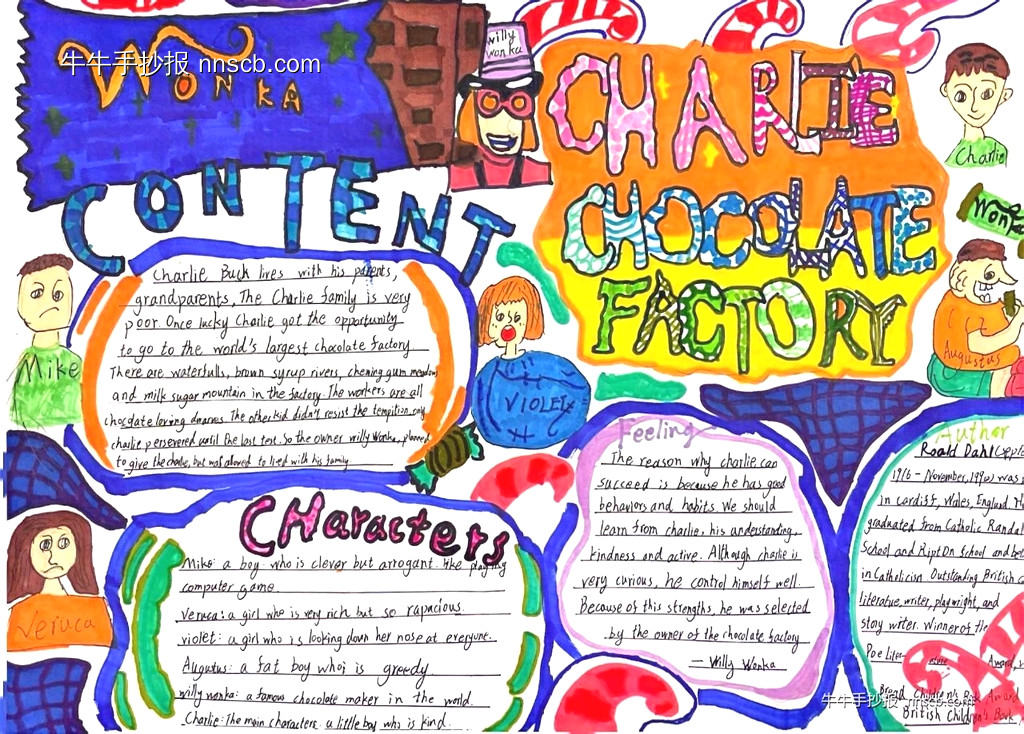 牛牛手抄报 nnscb.com
WONKA
willy wonka
CHARLIE
CHOCOLATE
FACTORY
Charlie
Wonka
CONTENT
Charlie Buck lives with his parents,
grandparents, The Charlie family is very
poor. Once lucky Charlie got the opportunity
to go to the world's largest chocolate factory
There are waterfulls, brown syrup rivers, chening gum meadows
and milk sugar mountain in the factory. The workers are all
chocolate loving dnarves. The other kid didn't resist the tempition only
charlie persevered until the last test. So the owner willy Wonka, planned
to give the charlie, but not allowed to lied with his family
Mike
VIOLET
Augustus
Characters
Mike: a boy who is clever but arrogant. like playing
computer game
Veruca: a girl who is very rich but so rapacious.
violet: a girl who is looking down her nose at everyone.
Augutus: a fat boy who is greedy
willy wonka: a famous chocolate maker in the world.
Charlie: The main characters. a little boy who is kind.
Veruca
Feeling
The reason why charlie can
succeed is because he has good
behaviors and habits. We should
learn from charlie, his understanding,
kindness and active. Although charlie is
very curious, he control himself well.
Because of this strengths, he was selected
by the owner of the chocolate factory
— Willy Wonka
Author
Roald Dahl
1916 - November, 1990) was
in Cardiff, Wales, England.
graduated from Catholic Randal
School and Ript On School and
in Catholicism Outstanding British
literatue, writer, playwright, and
stoy writer. Winner of the
Poe Liter Award
Bread Children's Book Award
British Children's Book,
牛牛手抄报 nnscb.com